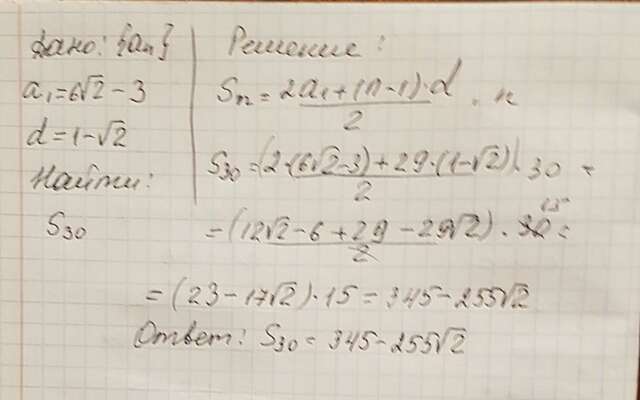 Дано: {aₙ}
a₁=6√2-3
d=1-√2
Найти:
S₃₀
Решение:
Sₙ = (2a₁+(n-1)·d)/2 · n
S₃₀ = (2·(6√2-3)+29·(1-√2))/2 · 30 =
= (12√2-6+29-29√2)/2 · 30 15 =
= (23-17√2)·15 = 345-255√2
Ответ: S₃₀ = 345-255√2